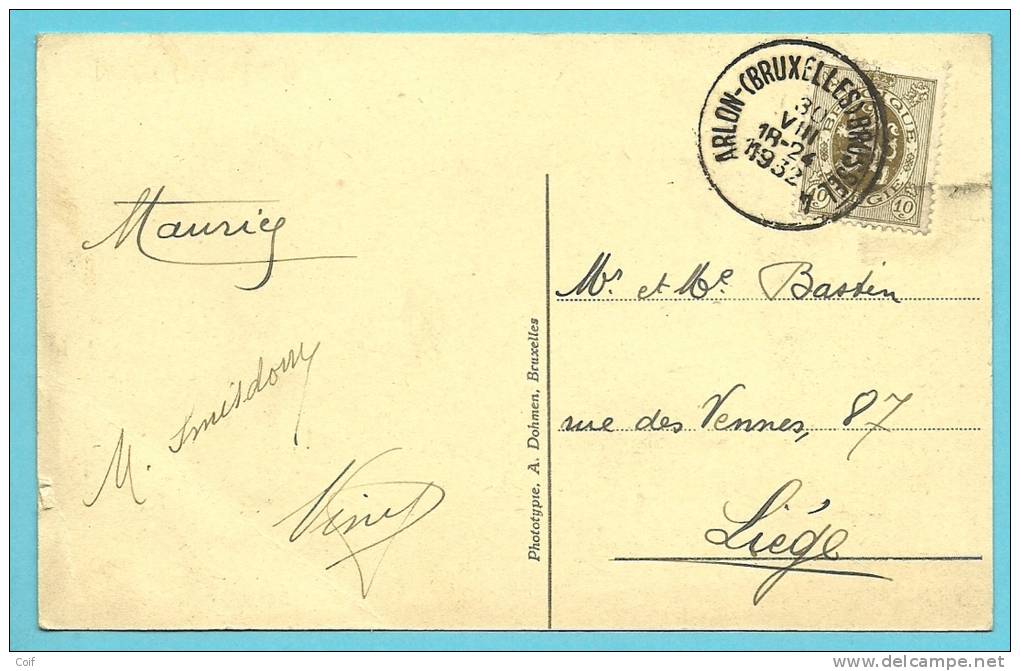 Maurice
M. Smisdom
Phototypie, A. Dohmen, Bruxelles
ARLON-(BRUXELLES)-BRUSSEL
30
VIII
18-24
1932
BELGIQUE
BELGIE
10
10
Mr et Me Bastin
rue des Vennes, 87
Liége
Coif
www.delcampe.net